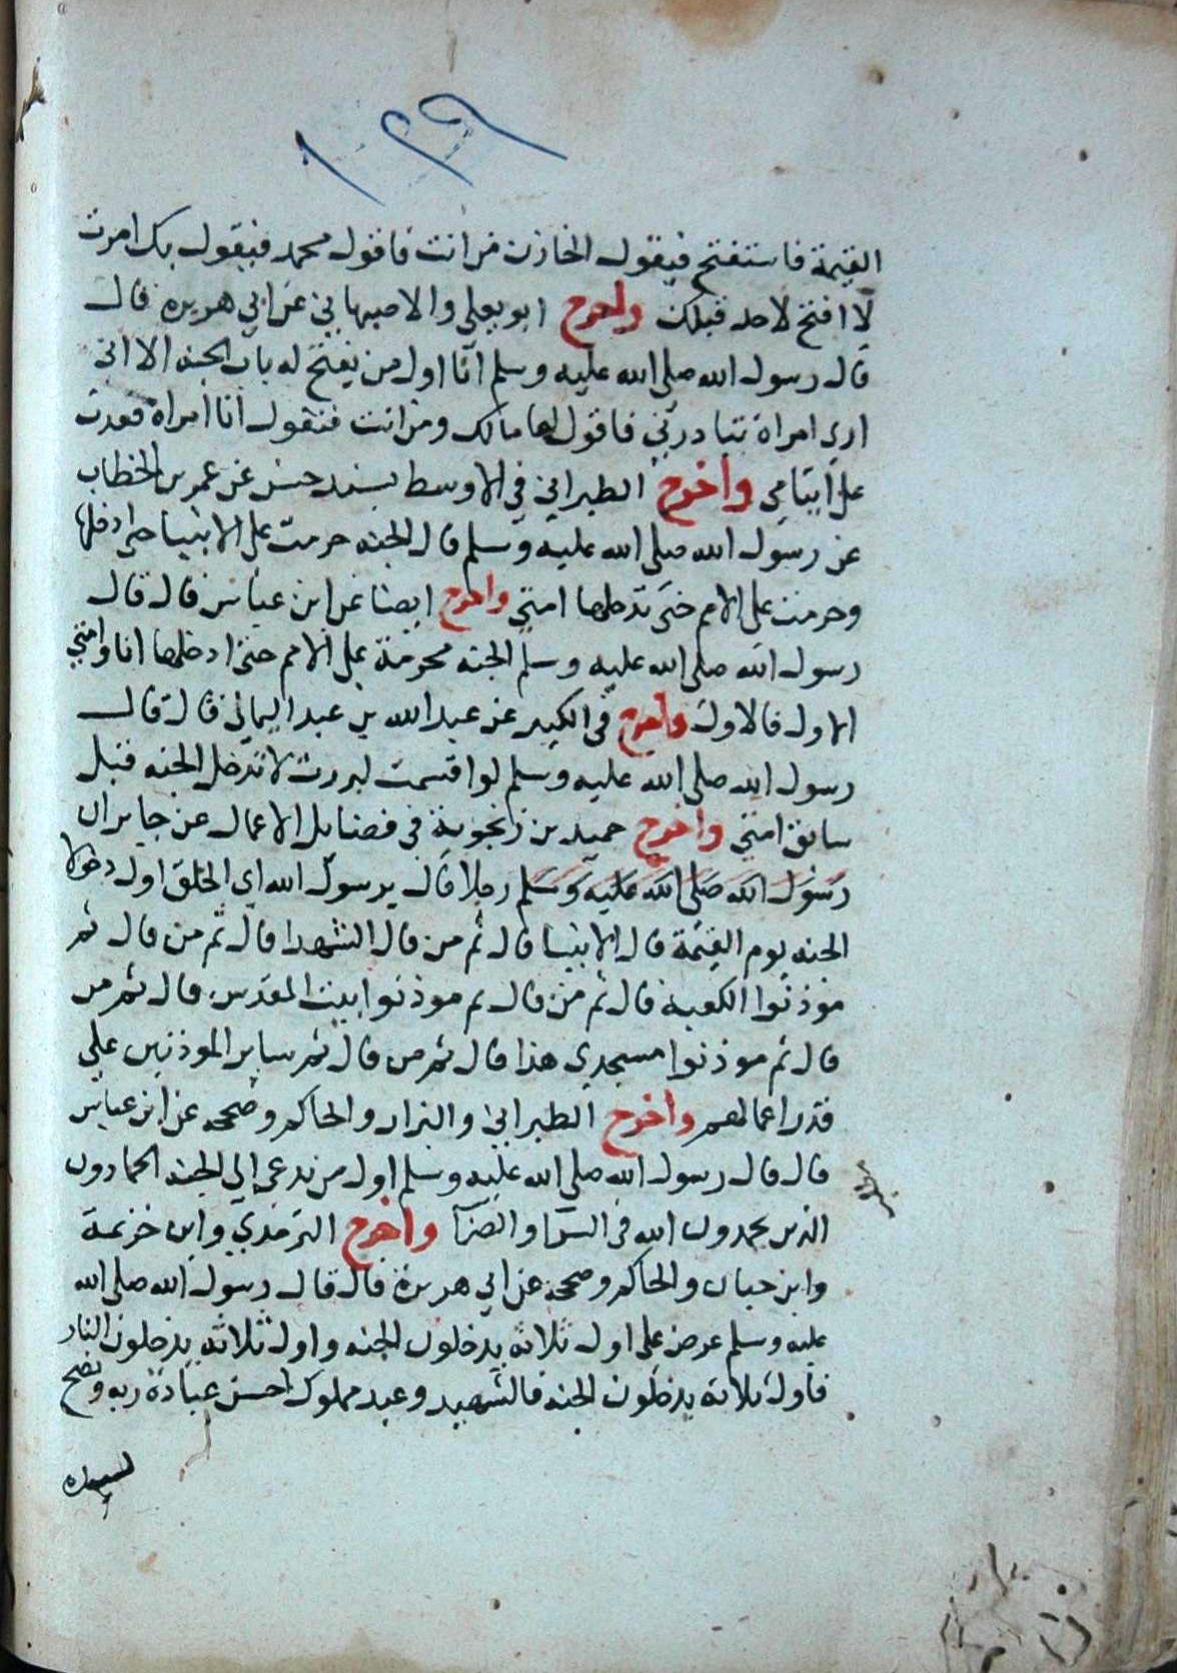 ١٠٢٩
القيمة فاستفتح فيقول الخازن من انت فاقول محمد فيقول بك امرت
لا افتح لاحد قبلك واخرج ابو يعلي والاصبهاني عن ابي هريره قال
قال رسول الله صلي الله عليه وسلم انا اول من يفتح له باب الجنه الا اني
اري امراة تبادرني فاقول لها مالك ومن انت فتقول انا امراة قعدت
علي ايتامي واخرج الطبراني في الاوسط بسند حسن عن عمر بن الخطاب
عن رسول الله صلي الله عليه وسلم قال الجنه حرمت علي الانبيا حتي ادخلها
وحرمت علي الامم حتي تدخلها امتي واخرج ايضا عن ابن عباس قال قال
رسول الله صلي الله عليه وسلم الجنه محرمة علي الامم حتي ادخلها انا وامتي
الاول فالاول واخرج في الكبير عن عبد الله بن عبد اليماني قال قال
رسول الله صلي الله عليه وسلم لو اقسمت لبررت لا تدخل الجنه قبل
سابق امتي واخرج حميد بن زنجوية في فضايل الاعمال عن جابر ان
رسول الله صلي الله عليه وسلم رجلا قال يرسول الله اي الخلق اول دخولا
الجنه يوم القيمة قال الانبيا قال ثم من قال الشهدا قال ثم من قال ثم
موذنوا الكعبة قال ثم من قال ثم موذنوا بيت المقدس قال ثم من
قال ثم موذنوا مسجدي هذا قال ثم من قال ثم ساير الموذنين علي
قدر اعمالهم واخرج الطبراني والبزار والحاكم وصححه عن ابن عباس
قال قال رسول الله صلي الله عليه وسلم اول من يدعي الي الجنه الحمادون
الذين يحمدون الله في السرا والضرا واخرج الترمذي وابن خزيمة
وابن حبان والحاكم وصححه عن ابي هريرة قال قال رسول الله صلي الله
عليه وسلم عرض علي اول ثلاثه يدخلون الجنه واول ثلاثه يدخلون النار
فاول ثلاثة يدخلون الجنه فالشهيد وعبد مملوك احسن عبادة ربه ونصح
لسيده